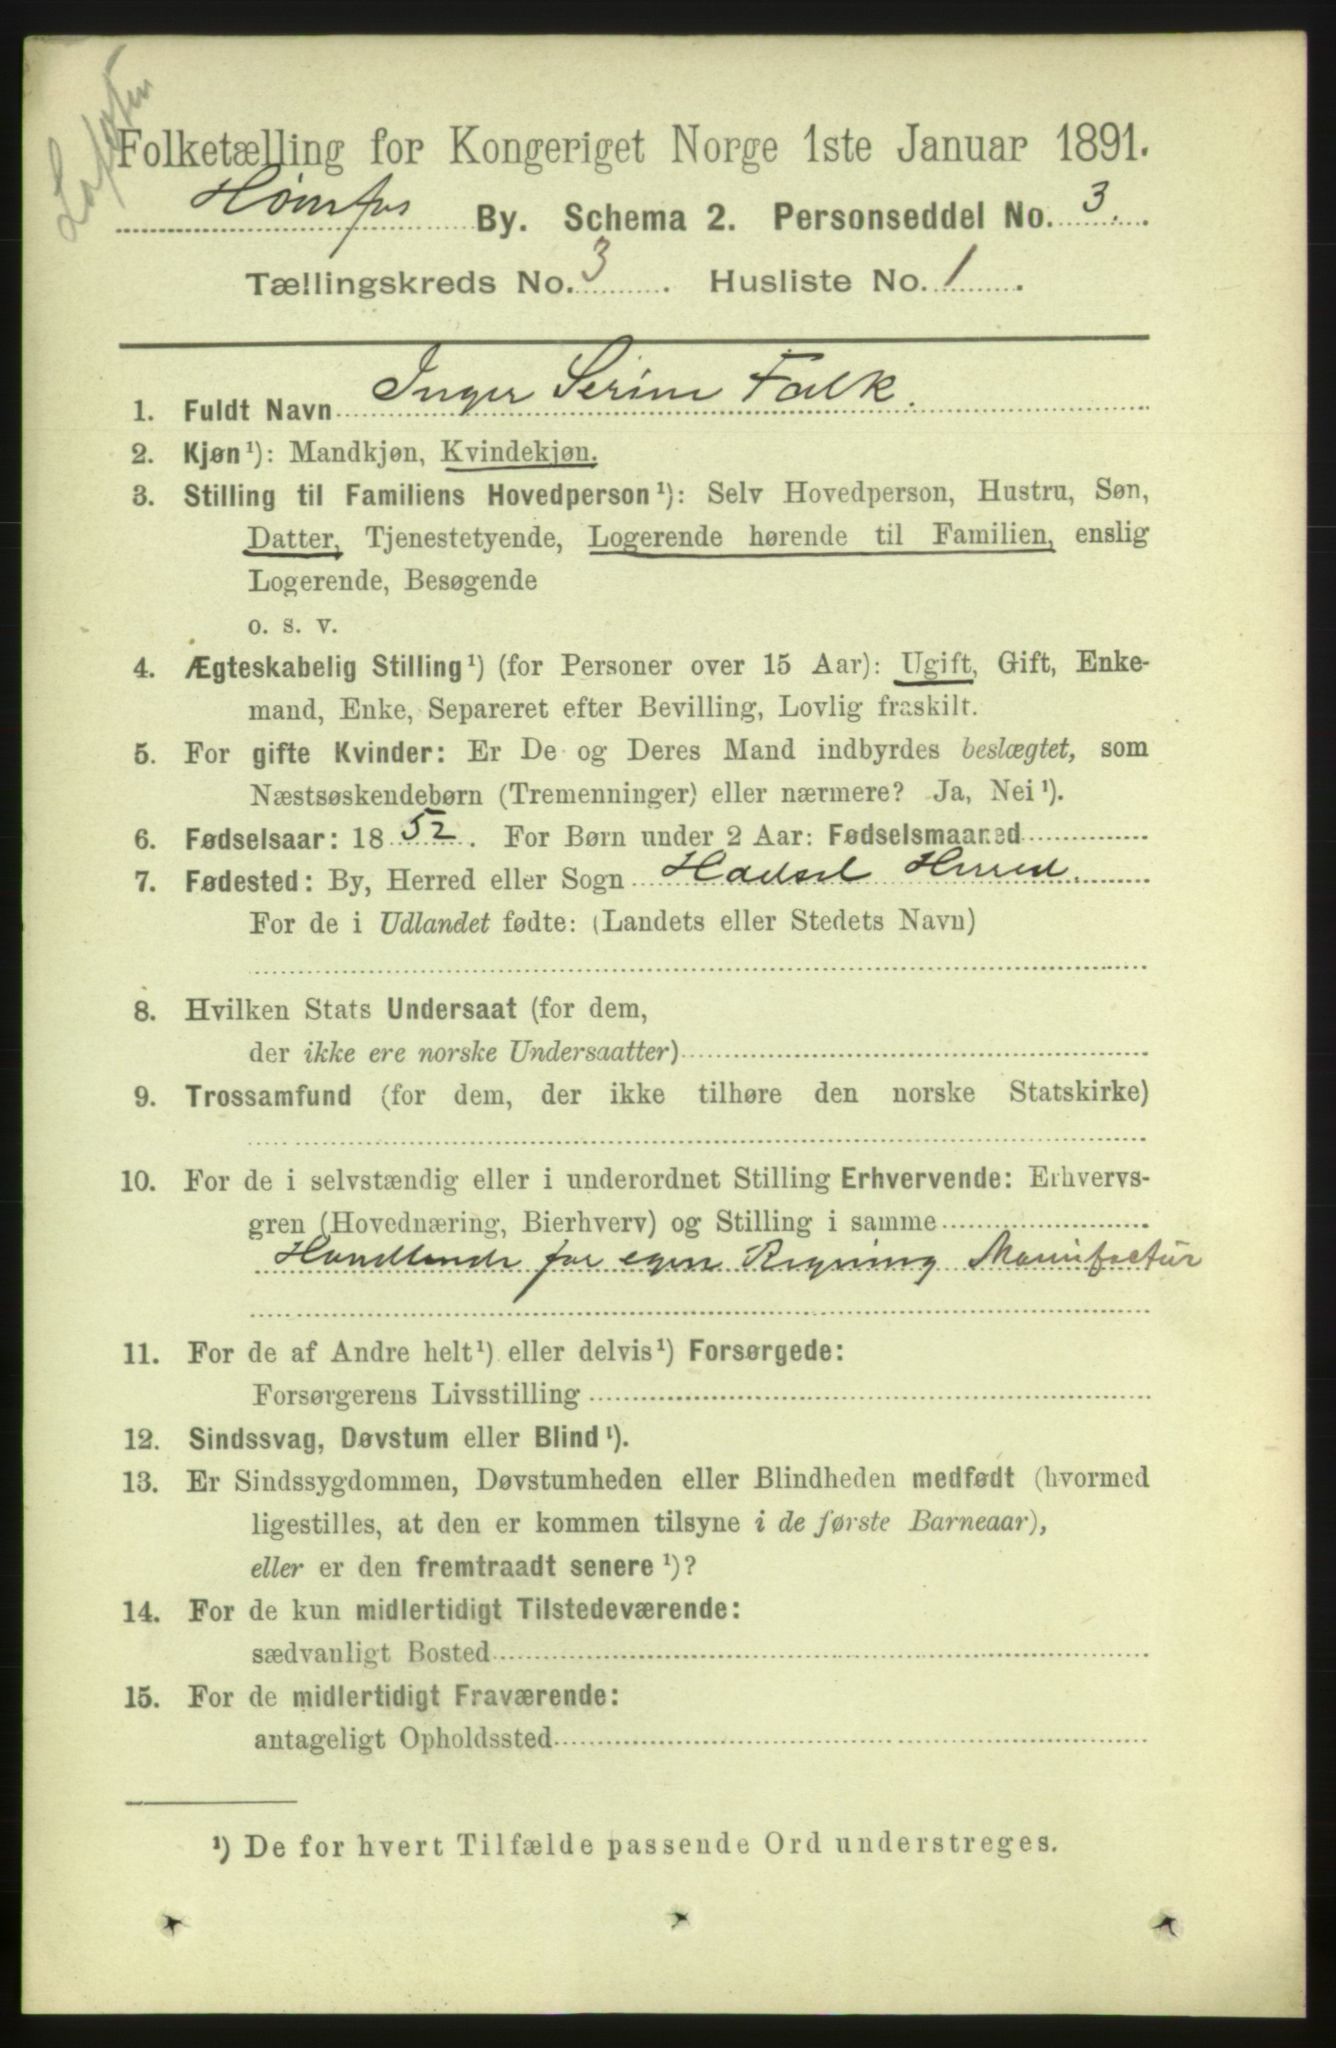 Lofoten
Folketælling for Kongeriget Norge 1ste Januar 1891.
Hønefos By. Schema 2. Personseddel No. 3.
Tællingskreds No. 3. Husliste No. 1.
1. Fuldt Navn Inger Serine Falk.
2. Kjøn¹): Mandkjøn, Kvindekjøn.
3. Stilling til Familiens Hovedperson¹): Selv Hovedperson, Hustru, Søn,
Datter, Tjenestetyende, Logerende hørende til Familien, enslig
Logerende, Besøgende
o. s. v.
4. Ægteskabelig Stilling¹) (for Personer over 15 Aar): Ugift, Gift, Enke-
mand, Enke, Separeret efter Bevilling, Lovlig fraskilt.
5. For gifte Kvinder: Er De og Deres Mand indbyrdes beslægtet, som
Næstsøskendebørn (Tremenninger) eller nærmere? Ja, Nei¹).
6. Fødselsaar: 1852. For Børn under 2 Aar: Fødselsmaaned
7. Fødested: By, Herred eller Sogn Hadsel Herred.
For de i Udlandet fødte: (Landets eller Stedets Navn)
8. Hvilken Stats Undersaat (for dem,
der ikke ere norske Undersaatter)
9. Trossamfund (for dem, der ikke tilhøre den norske Statskirke)
10. For de i selvstændig eller i underordnet Stilling Erhvervende: Erhvervs-
gren (Hovednæring, Bierhverv) og Stilling i samme
Handlende for egen Regning Manufactur
11. For de af Andre helt¹) eller delvis¹) Forsørgede:
Forsørgerens Livsstilling
12. Sindssvag, Døvstum eller Blind¹).
13. Er Sindssygdommen, Døvstumheden eller Blindheden medfødt (hvormed
ligestilles, at den er kommen tilsyne i de første Barneaar),
eller er den fremtraadt senere¹)?
14. For de kun midlertidigt Tilstedeværende:
sædvanligt Bosted
15. For de midlertidigt Fraværende:
antageligt Opholdssted
¹) De for hvert Tilfælde passende Ord understreges.